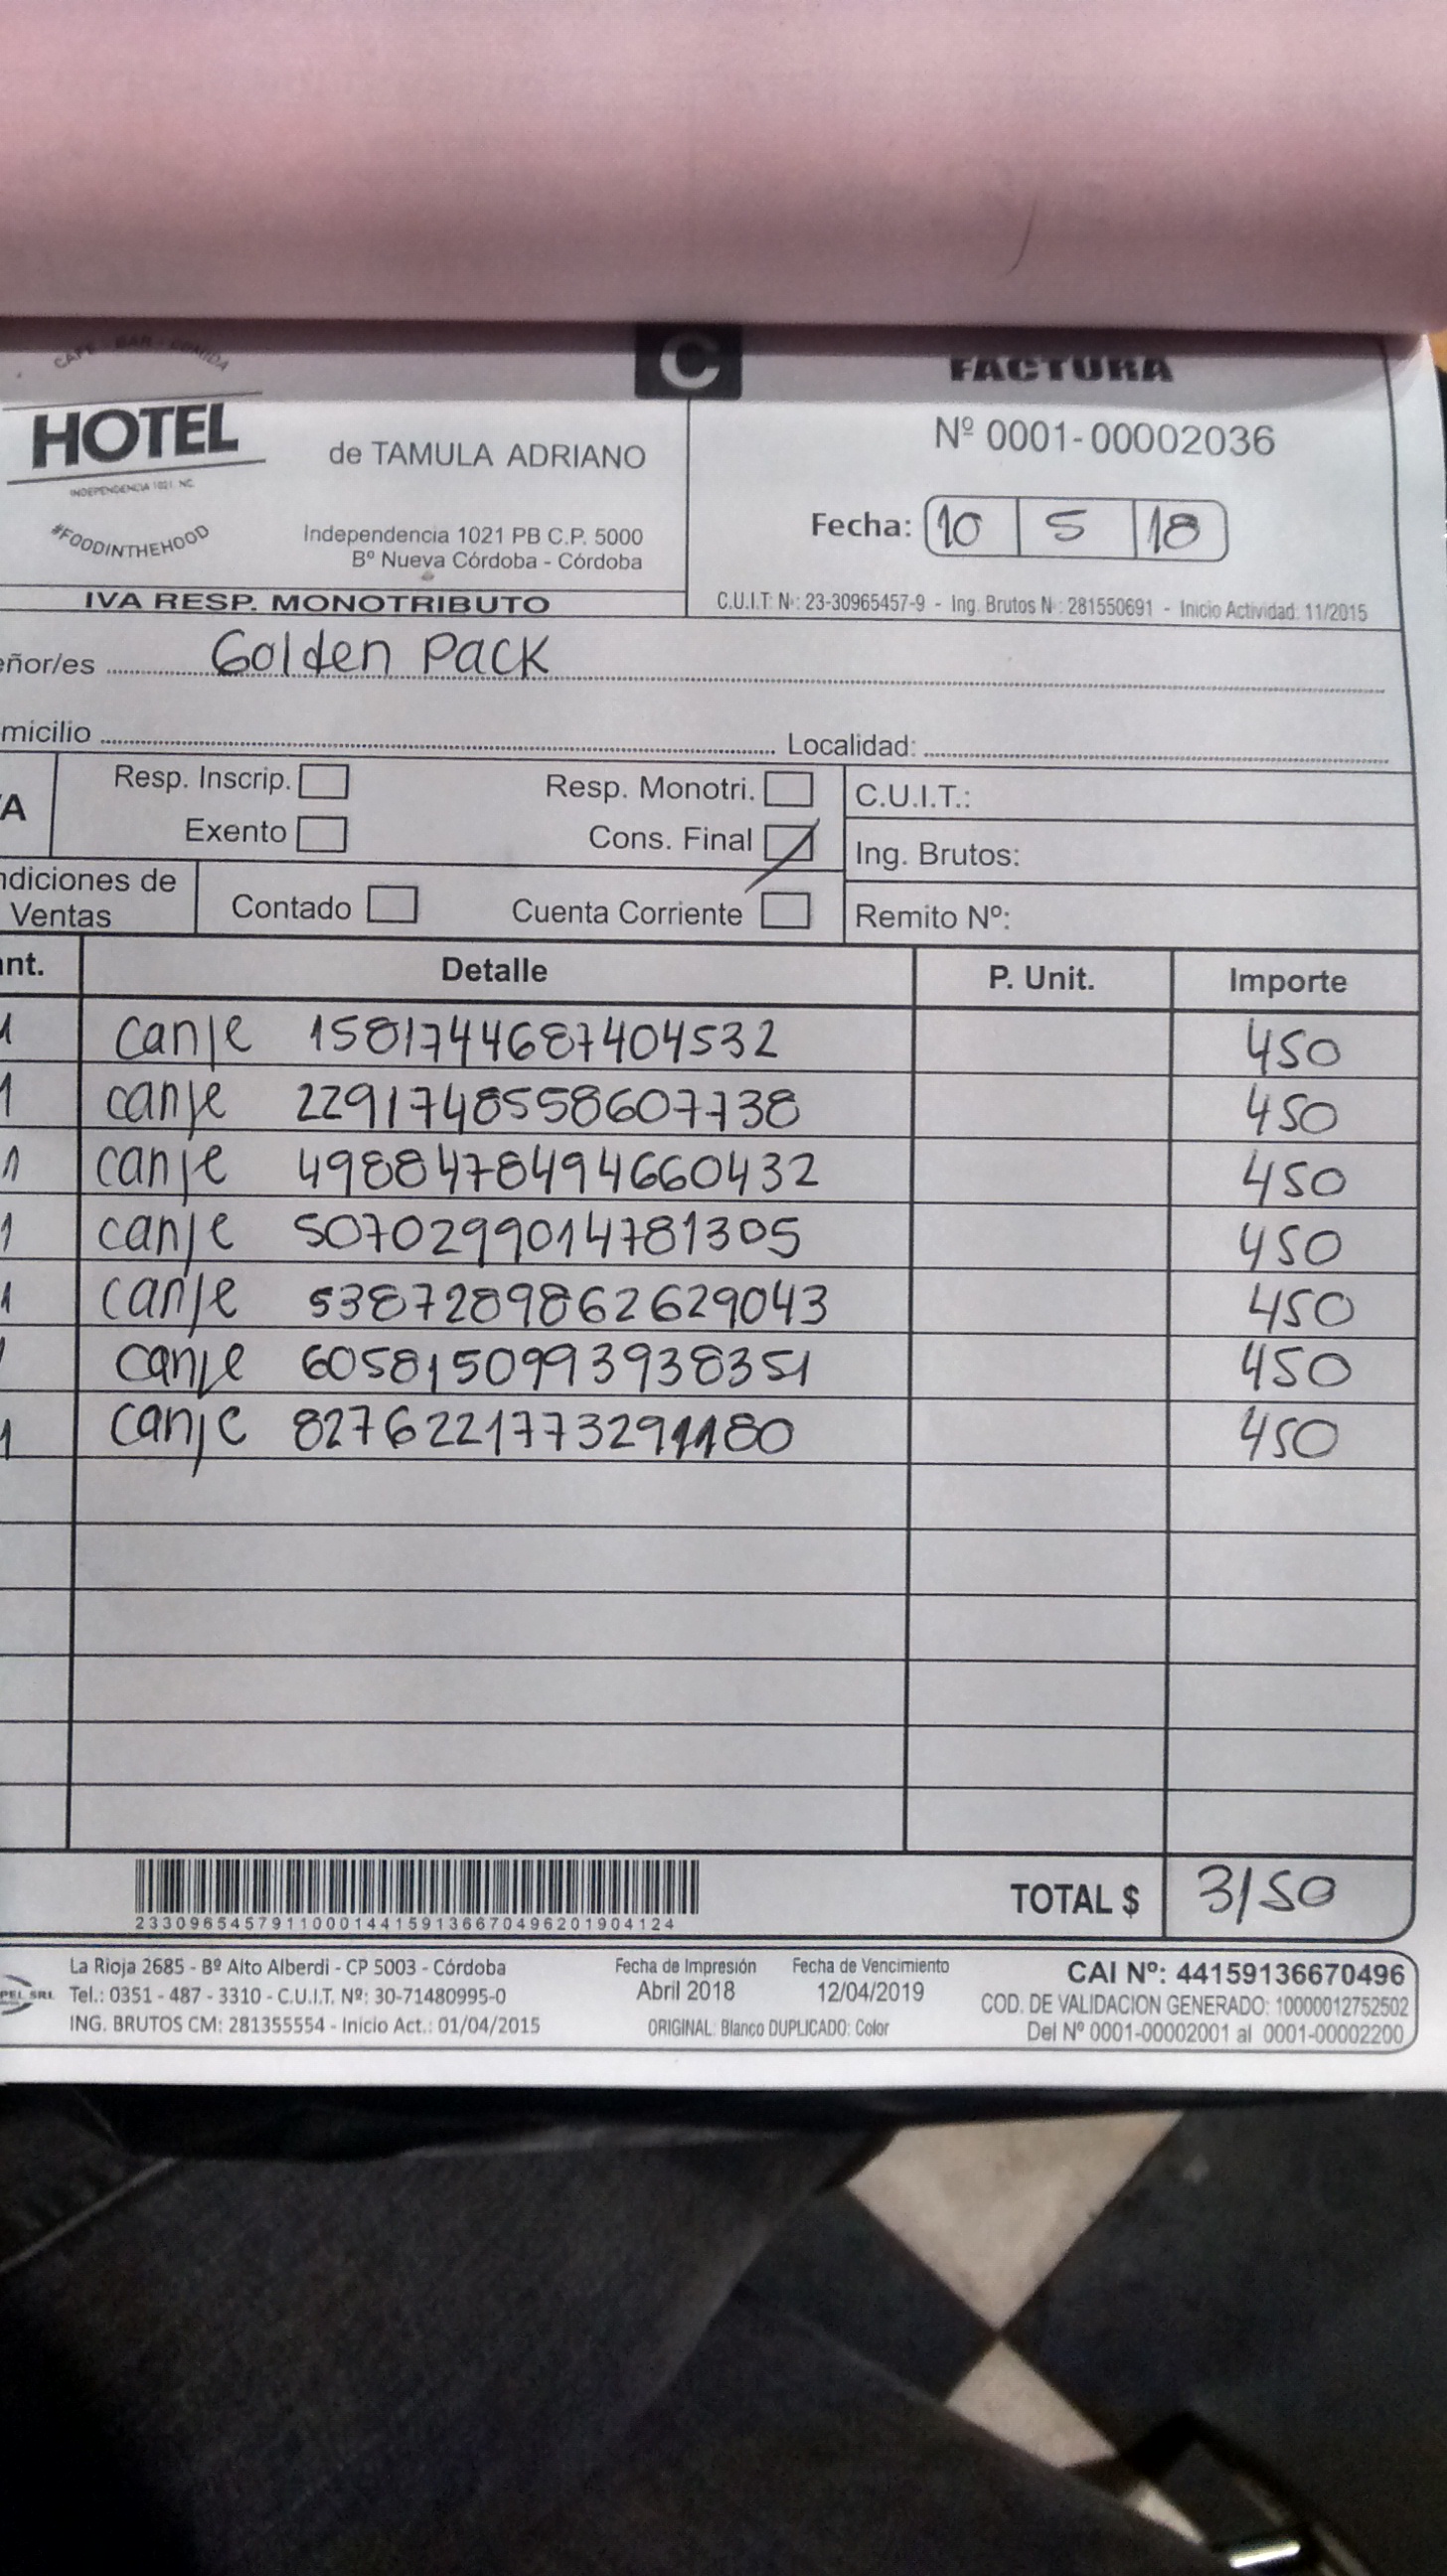 CAFE - BAR - COMIDA
C
FACTURA
HOTEL
de TAMULA ADRIANO
Nº 0001-00002036
INDEPENDENCIA 1021. NC.
Fecha: 10 5 18
#FOODINTHEHOOD
Independencia 1021 PB C.P. 5000
Bº Nueva Córdoba - Córdoba
IVA RESP. MONOTRIBUTO
C.U.I.T: Nº: 23-30965457-9 - Ing. Brutos Nº: 281550691 - Inicio Actividad: 11/2015
eñor/es Golden Pack
micilio Localidad:
A Resp. Inscrip. Resp. Monotri. C.U.I.T.:
Exento Cons. Final Ing. Brutos:
ndiciones de
Ventas Contado Cuenta Corriente Remito Nº:
nt. Detalle P. Unit. Importe
1 canje 1581744687404532 450
1 canje 2291748558607738 450
1 canje 4988478494660432 450
1 canje 5070299014781305 450
1 canje 5387289862629043 450
1 canje 6058150993938351 450
1 canje 8276221773291180 450
TOTAL $ 3150
2330965457911000144159136670496201904124
La Rioja 2685 - Bº Alto Alberdi - CP 5003 - Córdoba
PEL SRL Tel.: 0351 - 487 - 3310 - C.U.I.T. Nº: 30-71480995-0
ING. BRUTOS CM: 281355554 - Inicio Act.: 01/04/2015
Fecha de Impresión Fecha de Vencimiento
Abril 2018 12/04/2019
ORIGINAL: Blanco DUPLICADO: Color
CAI Nº: 44159136670496
COD. DE VALIDACION GENERADO: 10000012752502
Del Nº 0001-00002001 al 0001-00002200